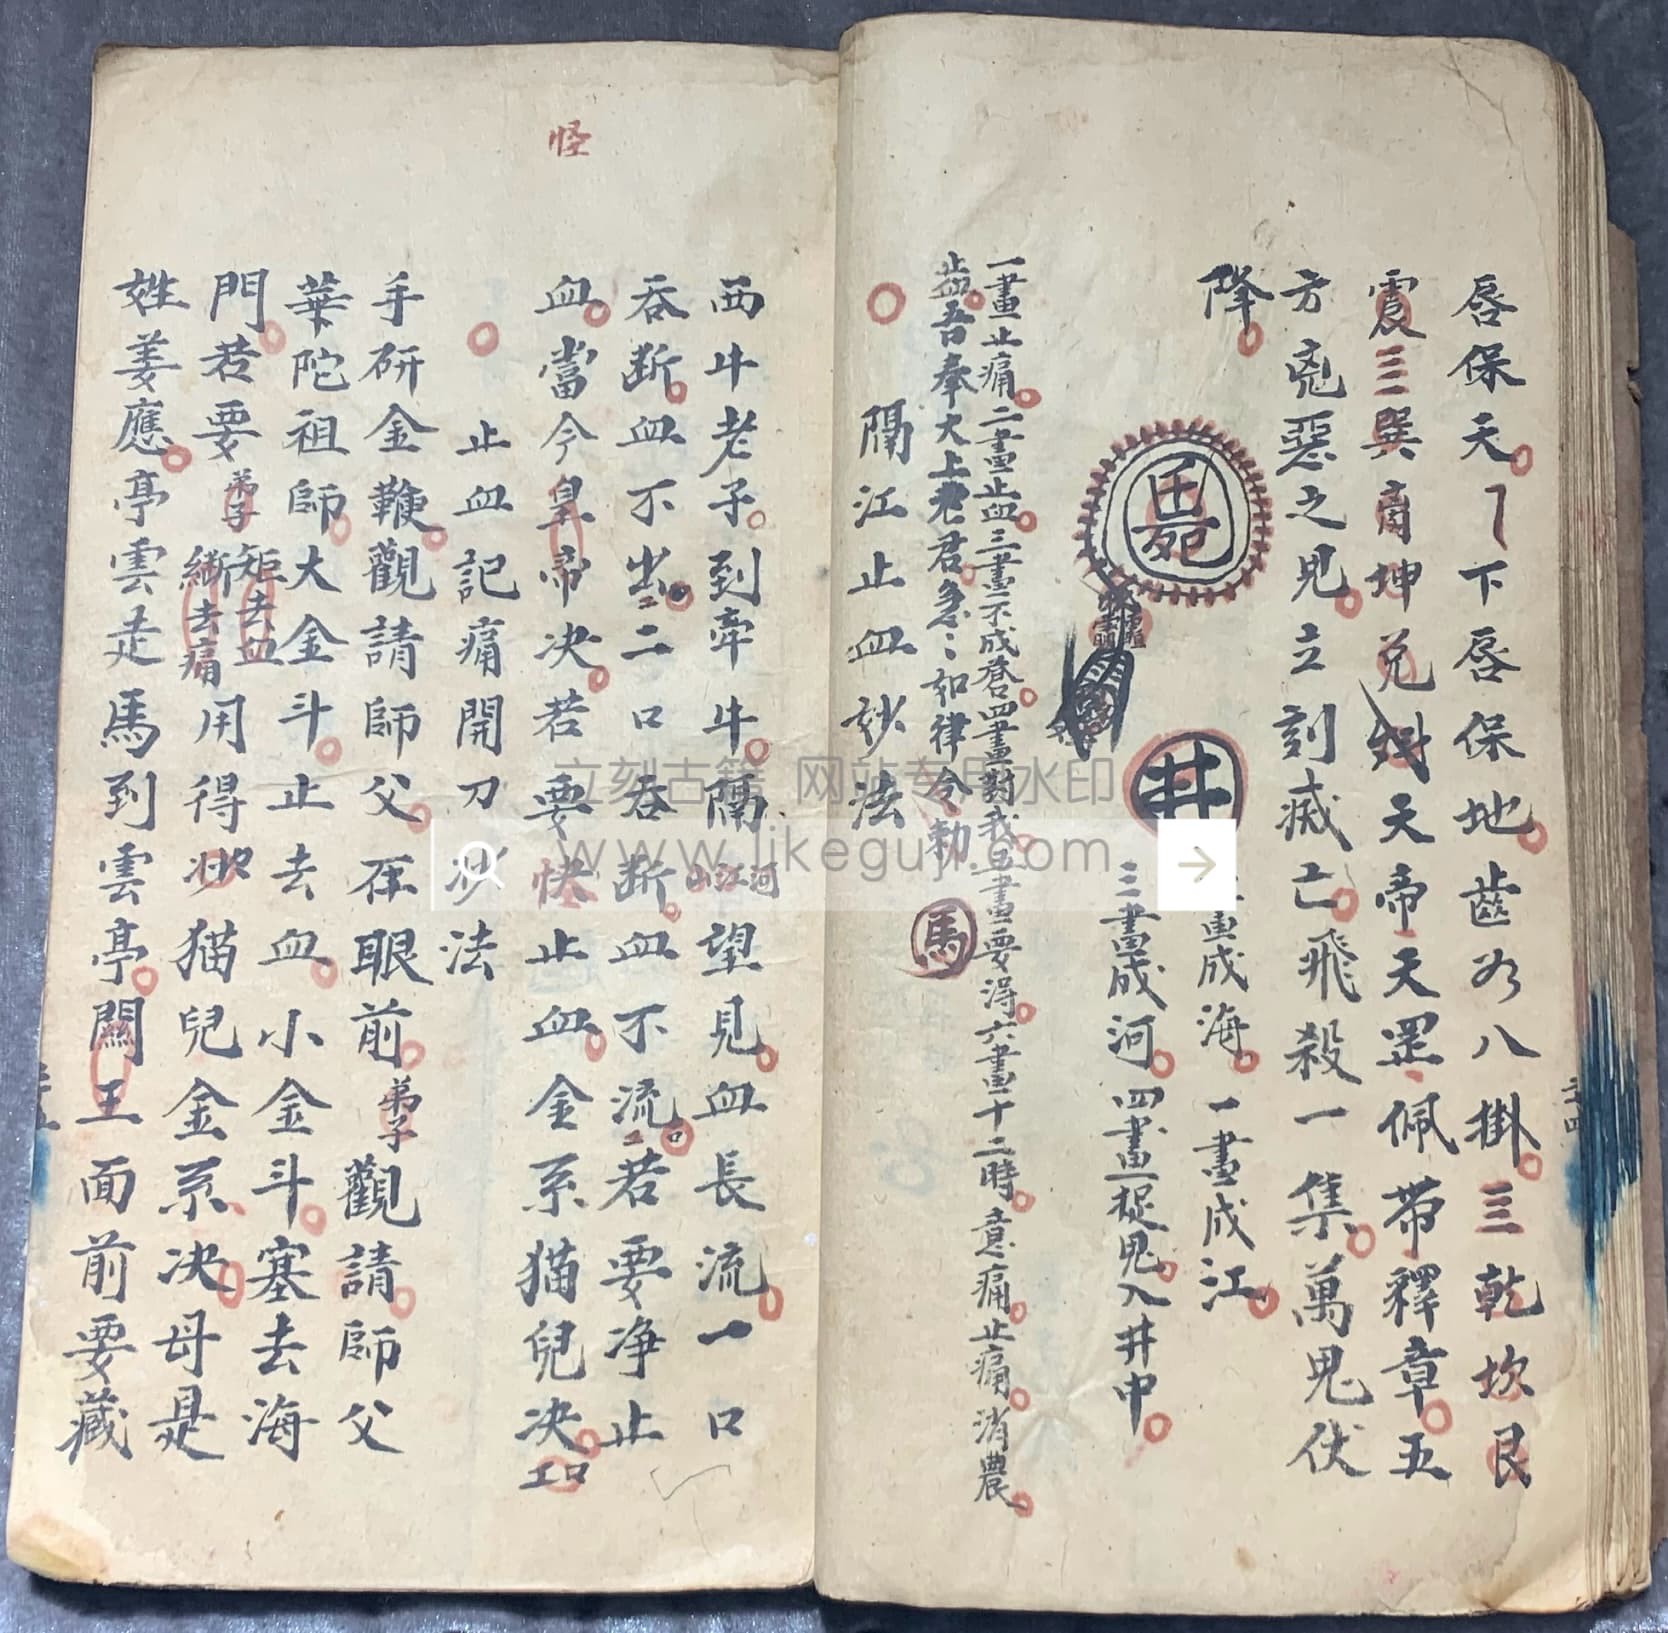 唇保天下唇保地齒為八掛三乾坎艮
震三巽离坤兌天帝天罡佩帶釋章五
方兇惡之鬼立刻滅亡飛殺一集萬鬼伏
降
井
畫成海一畫成江
三畫成河四畫捉鬼入井中
一畫止痛二畫止血三畫不成瘡四畫對我五畫要得六畫十二時意痛止痛消農
止血吾奉大上老君急〻如律令勅
馬
隔江止血妙法
西牛老子到牽牛隔山江河望見血長流一口
吞斷血不出二口吞斷血不流口若要净止
血當今皇帝决若要快止血金系猫兒决
止血記痛開刀妙法
手硏金鞭觀請師父在眼前弟子觀請師父
華陀祖師大金斗止去血小金斗塞去海
門若要弟子矩去血斷去痛用得妙猫兒金系决母是
姓姜應亭雲走馬到雲亭關王面前要藏
怪
立刻古籍 网站专用水印
www.likeguji.com